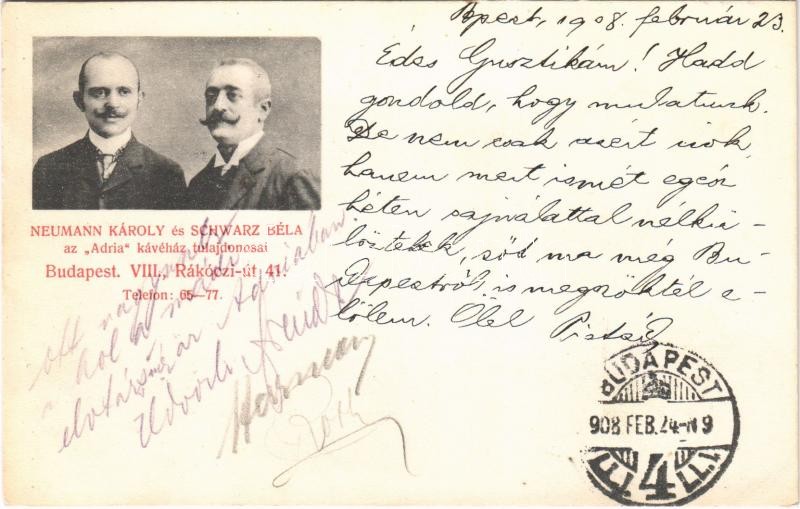 Bpest, 1908. február 23.
Édes Gusztikám! Hadd
gondold, hogy mulatunk.
De nem csak azért irok,
hanem mert ismét egész
héten sajnálattal nélkü-
löztelek, sőt ma még Bu-
dapestről is megszöktél e-
lőlem. Ölel Pistád
NEUMANN KÁROLY és SCHWARZ BÉLA
az „Adria“ kávéház tulajdonosai
Budapest. VIII., Rákóczi-út 41.
Telefon: 65—77.
ott
hol a
az Adriában.
Üdvözli
Herman
Róth
BUDAPEST
908 FEB. 24
4